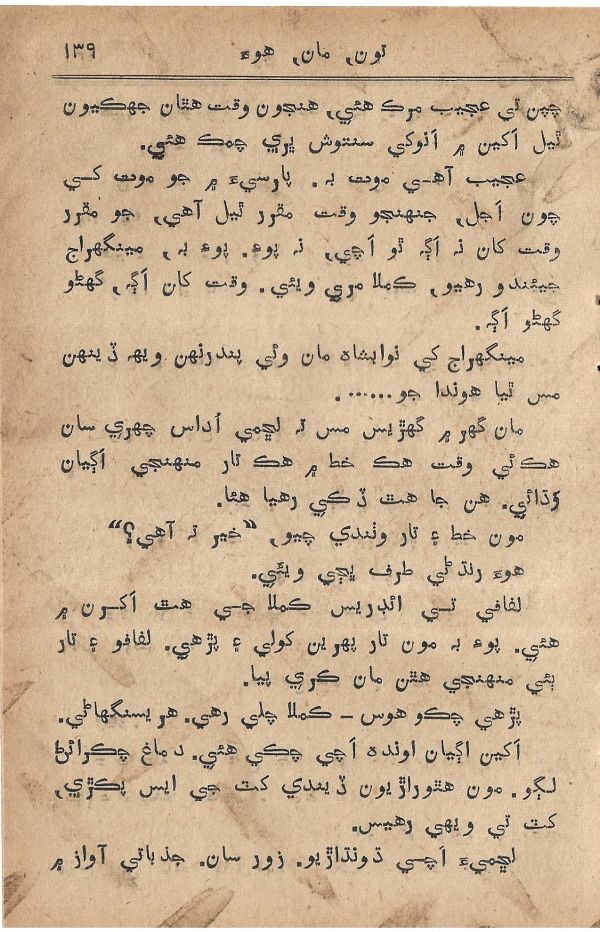 تون, مان, هوءَ ١٣٩
چپن تي عجيب مرڪ هئي, هنجون وقت هٿان جهڪيون
ٿيل اَکين ۾ اَنوکي سنتوش ڀري چمڪ هئي.
عجيب آهي موت به. پارسيءَ ۾ جو موت کي
چون اَجل, جنهنجو وقت مقرر ٿيل آهي, جو مقرر
وقت کان نہ اڳہ ٿو اَچي, نہ پوءِ. پوءِ بہ, مينگهراج
جيئندو رهيو, ڪملا مري ويئي. وقت کان اَڳہ, گهڻو
گهڻو اَڳہ.
مينگهراج کي نوابشاه مان وئي پندرنهن ويهہ ڏينهن
مس ٿيا هوندا جو.......
مان گهر ۾ گهڙيس مس تہ لڇمي اُداس چهري سان
هڪ ئي وقت هڪ خط ۾ هڪ تار منهنجي اڳيان
وَڌائي. هن جا هٿ ڏڪي رهيا هئا.
مون خط ۽ تار وٺندي چيو, “خير تہ آهي؟”
هوءَ رنڌڻي طرف ڀڄي ويئي.
لفافي تي ائڊريس ڪملا جي هٿ اَکرن ۾
هئي. پوءِ بہ مون تار پهرين کولي ۽ پڙهي. لفافو ۽ تار
ٻئي منهنجي هٿن مان ڪري پيا.
پڙهي چڪو هوس – ڪملا چلي رهي. هريسنگهاڻي.
اَکين اڳيان اونده اَچي چڪي هئي. دماغ چڪرائڻ
لڳو. مون هٿوراڙيون ڏيندي کٽ جي ايس پڪڙي,
کٽ تي ويهي رهيس.
لڇميءَ اَچي ڌونڌاڙيو. زور سان. جذباتي آواز ۾